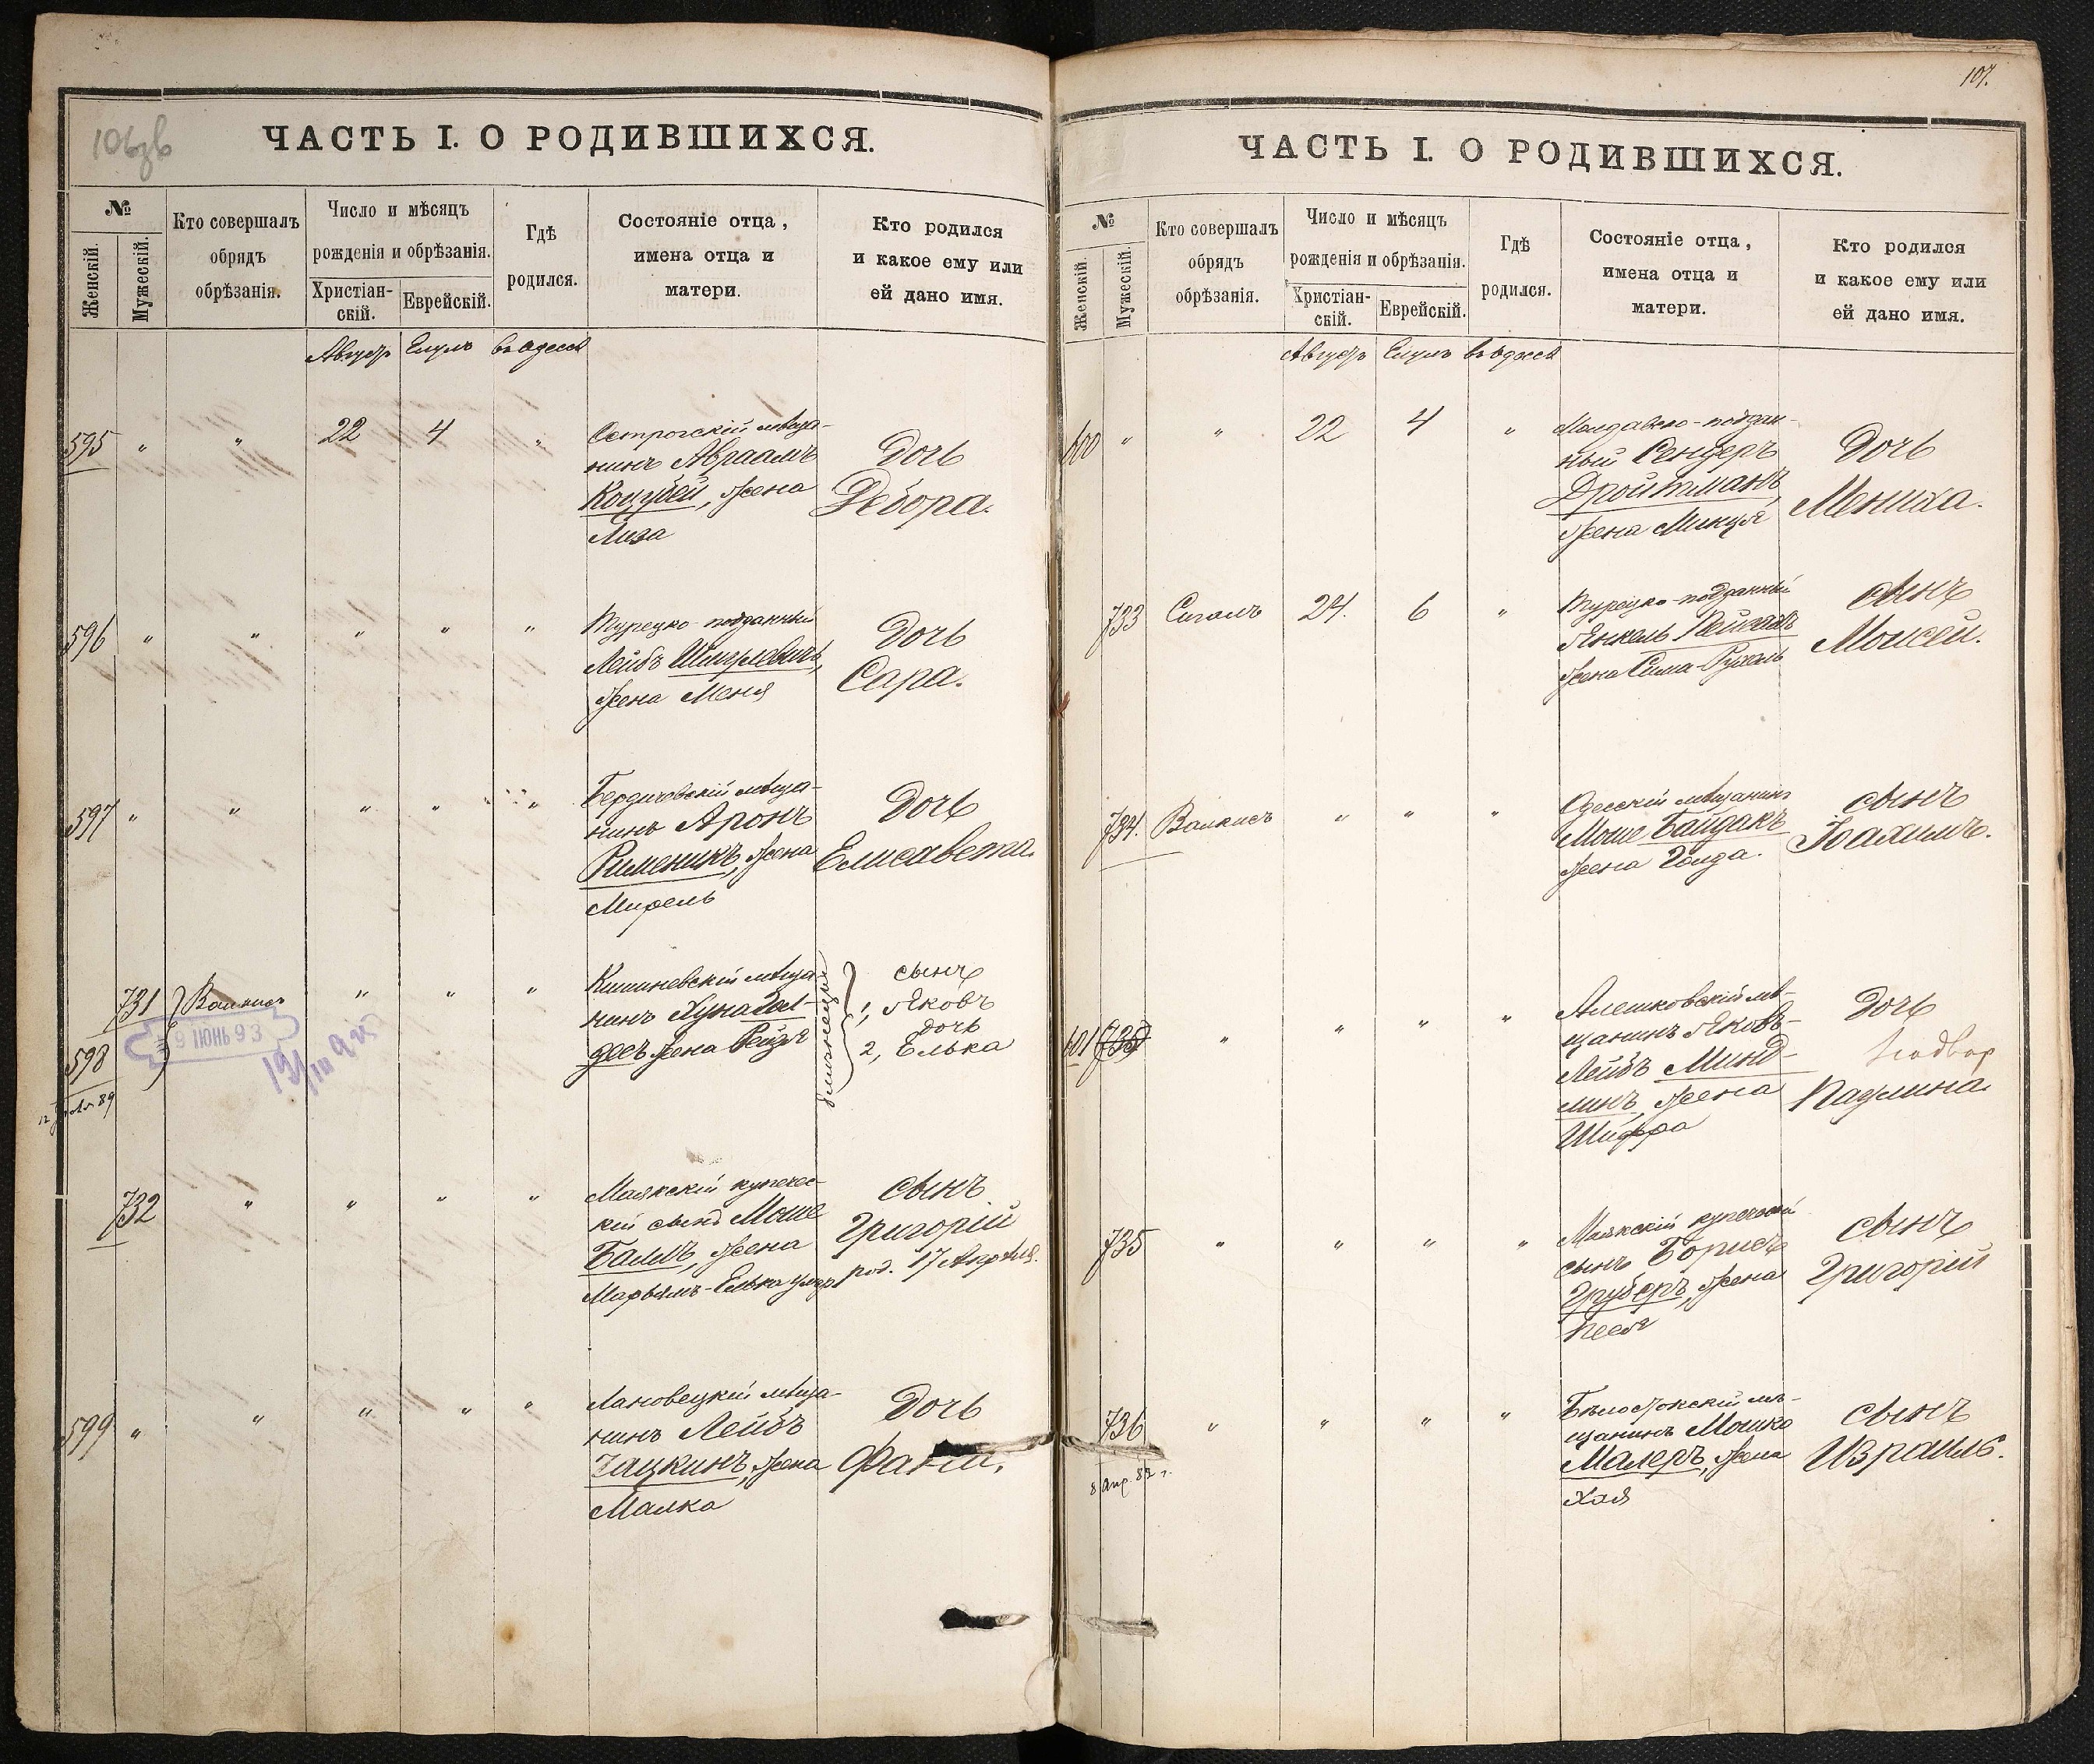 106зв
ЧАСТЬ I. О РОДИВШИХСЯ.
№
Женскій.
Мужескій.
Кто совершалъ
обрядъ
обрѣзанія.
Число и мѣсяцъ
рожденія и обрѣзанія.
Христіан-
скій.
Еврейскій.
Гдѣ
родился.
Состояніе отца,
имена отца и
матери.
Кто родился
и какое ему или
ей дано имя.
Августъ Елулъ въ Одессѣ
595 " " 22 4 "
Острогскій мѣща-
нинъ Авраамъ
Коцубей, жена
Лиза
Дочь
Дебора.
596 " " " " "
Турецко-подданный
Лейбъ
жена Меня
Дочь
Сара.
597 " " " " "
Бердичевскій мѣща-
нинъ Аронъ
Рименикъ, жена
Мирель
Дочь
Елисавета.
731
598
Валкисъ " " "
9 ІЮНЬ 93
Кишиневскій мѣща-
нинъ
жена Рейзя
близнецы
сынъ
1, Яковъ
дочь
2, Елька
732 " " " "
Маякскій купечес-
кій сынъ Моше
Балъ, жена
Марьямъ-Елька
сынъ
Григорій
род. 17 Апрѣля.
599 " " " " "
Лановецкій мѣща-
нинъ Лейбъ
Зацкинъ, жена
Малка
Дочь
Фаня.
107.
ЧАСТЬ I. О РОДИВШИХСЯ.
№
Женскій.
Мужескій.
Кто совершалъ
обрядъ
обрѣзанія.
Число и мѣсяцъ
рожденія и обрѣзанія.
Христіан-
скій.
Еврейскій.
Гдѣ
родился.
Состояніе отца,
имена отца и
матери.
Кто родился
и какое ему или
ей дано имя.
Августъ Елулъ въ Одессѣ
600 " " 22 4 "
Молдавско-поддан-
ный Сендеръ
Дройтманъ,
жена Минця
Дочь
Мениха.
733 Сигалъ 24. 6 "
Турецко-подданный
Янкель
жена Сима-Рухель
сынъ
Моисей.
734. Валкисъ " " "
Одесскій мѣщанинъ
Моше Байдакъ
жена Голда.
сынъ
Іоахимъ.
601 735 " " " "
Алешковскій мѣ-
щанинъ Яковъ-
Лейбъ Минд-
линъ, жена
Шифра
Дочь
Паулина.
735 " " " "
Маякскій купеческій
сынъ Борисъ
Груберъ, жена
Песя
сынъ
Григорій
736 " " " "
8 апр. 89 г.
мѣ-
щанинъ Мошко
Малеръ, жена
Хая
сынъ
Израиль.